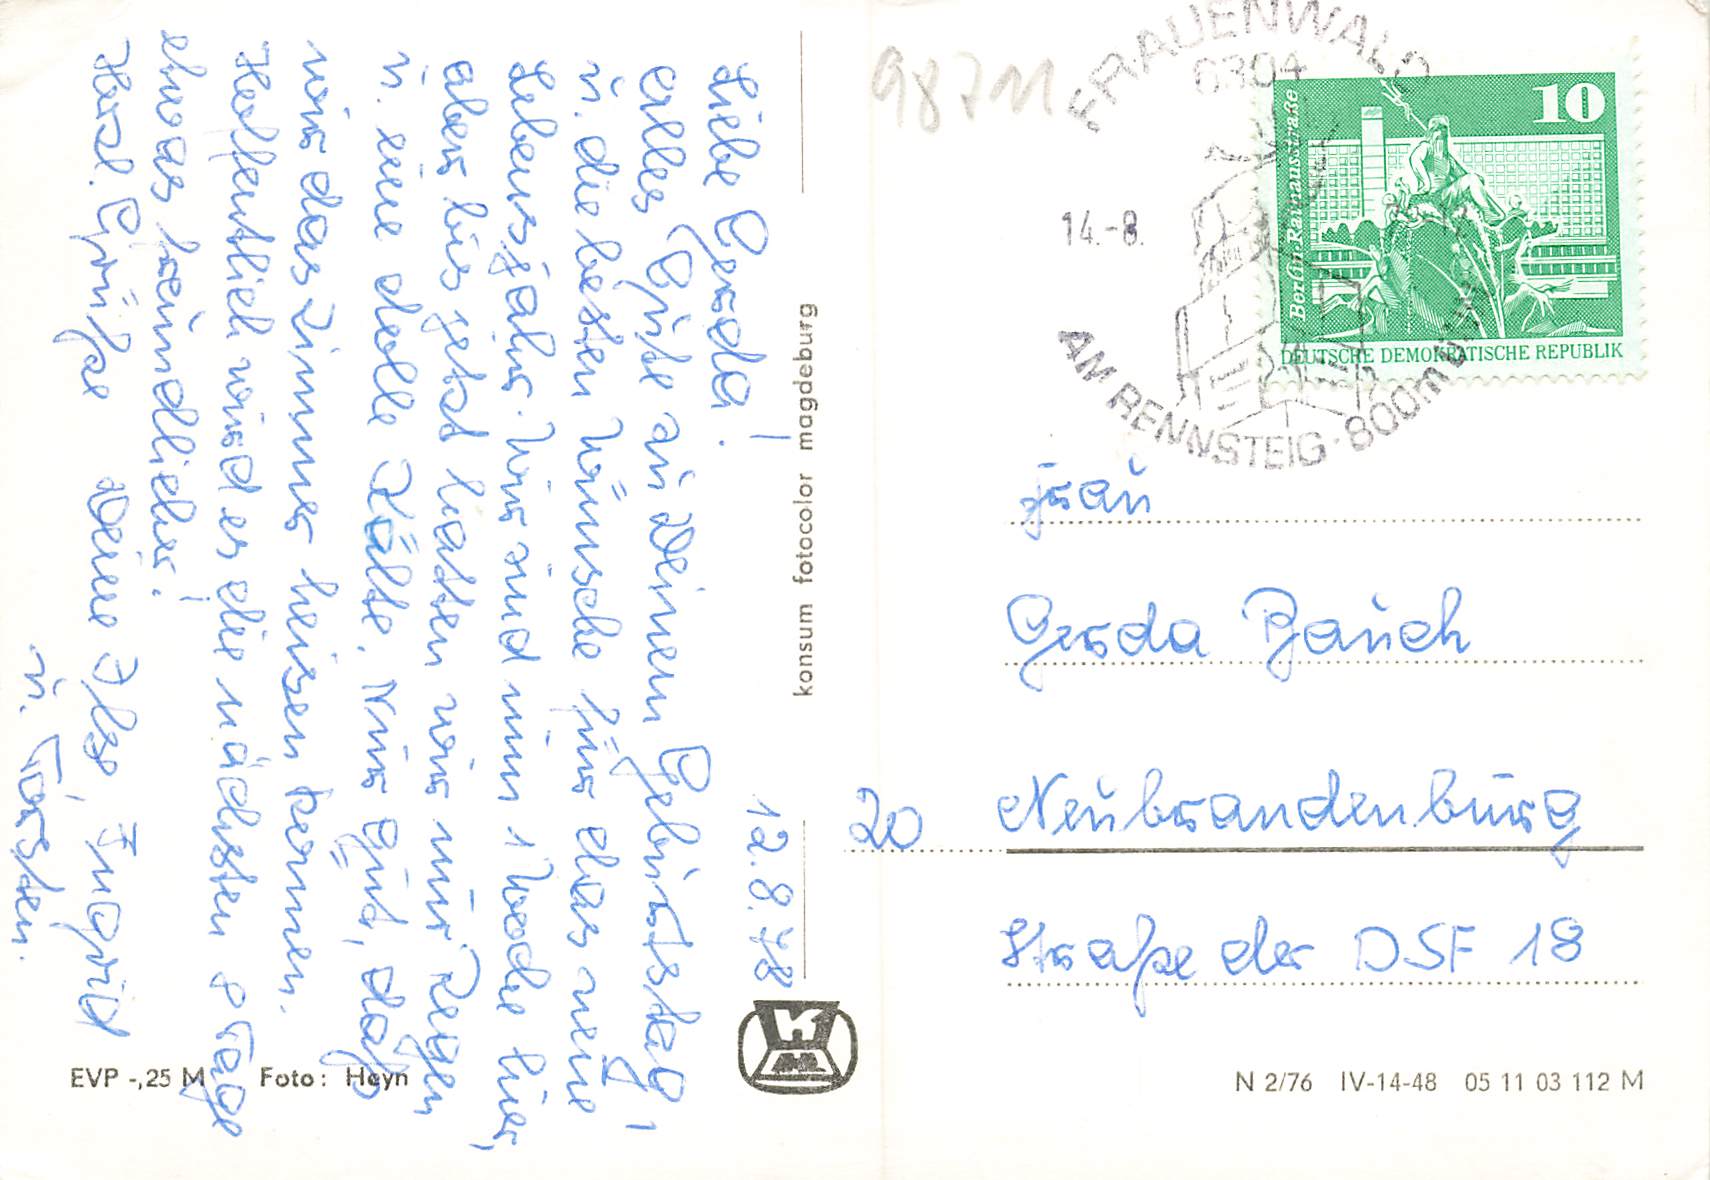 12.8.78
Liebe Gerda!
Alles Gute zu Deinem Geburtstag,
u. die besten Wünsche für das neue
Lebensjahr. Wir sind nun 1 Woche hier,
aber bis jetzt hatten wir nur Regen
u. eine dolle Kälte. Nur gut, daß
wir das Zimmer heisen konnen.
Hoffentlich wird es die nächsten 8 Tage
etwas freundlicher!
Herzl. Grüße Deine Ilse, Ingrid
u. Torsten.
EVP -,25 M Foto: Heyn
konsum fotocolor magdeburg
KM
98711
FRAUENWALD
6304
14.-8.
AM RENNSTEIG · 800m ü.
10
Berlin-Rathausstraße
DEUTSCHE DEMOKRATISCHE REPUBLIK
Frau
Gerda Bauch
20 Neubrandenburg
Straße der DSF 18
N 2/76 IV-14-48 05 11 03 112 M